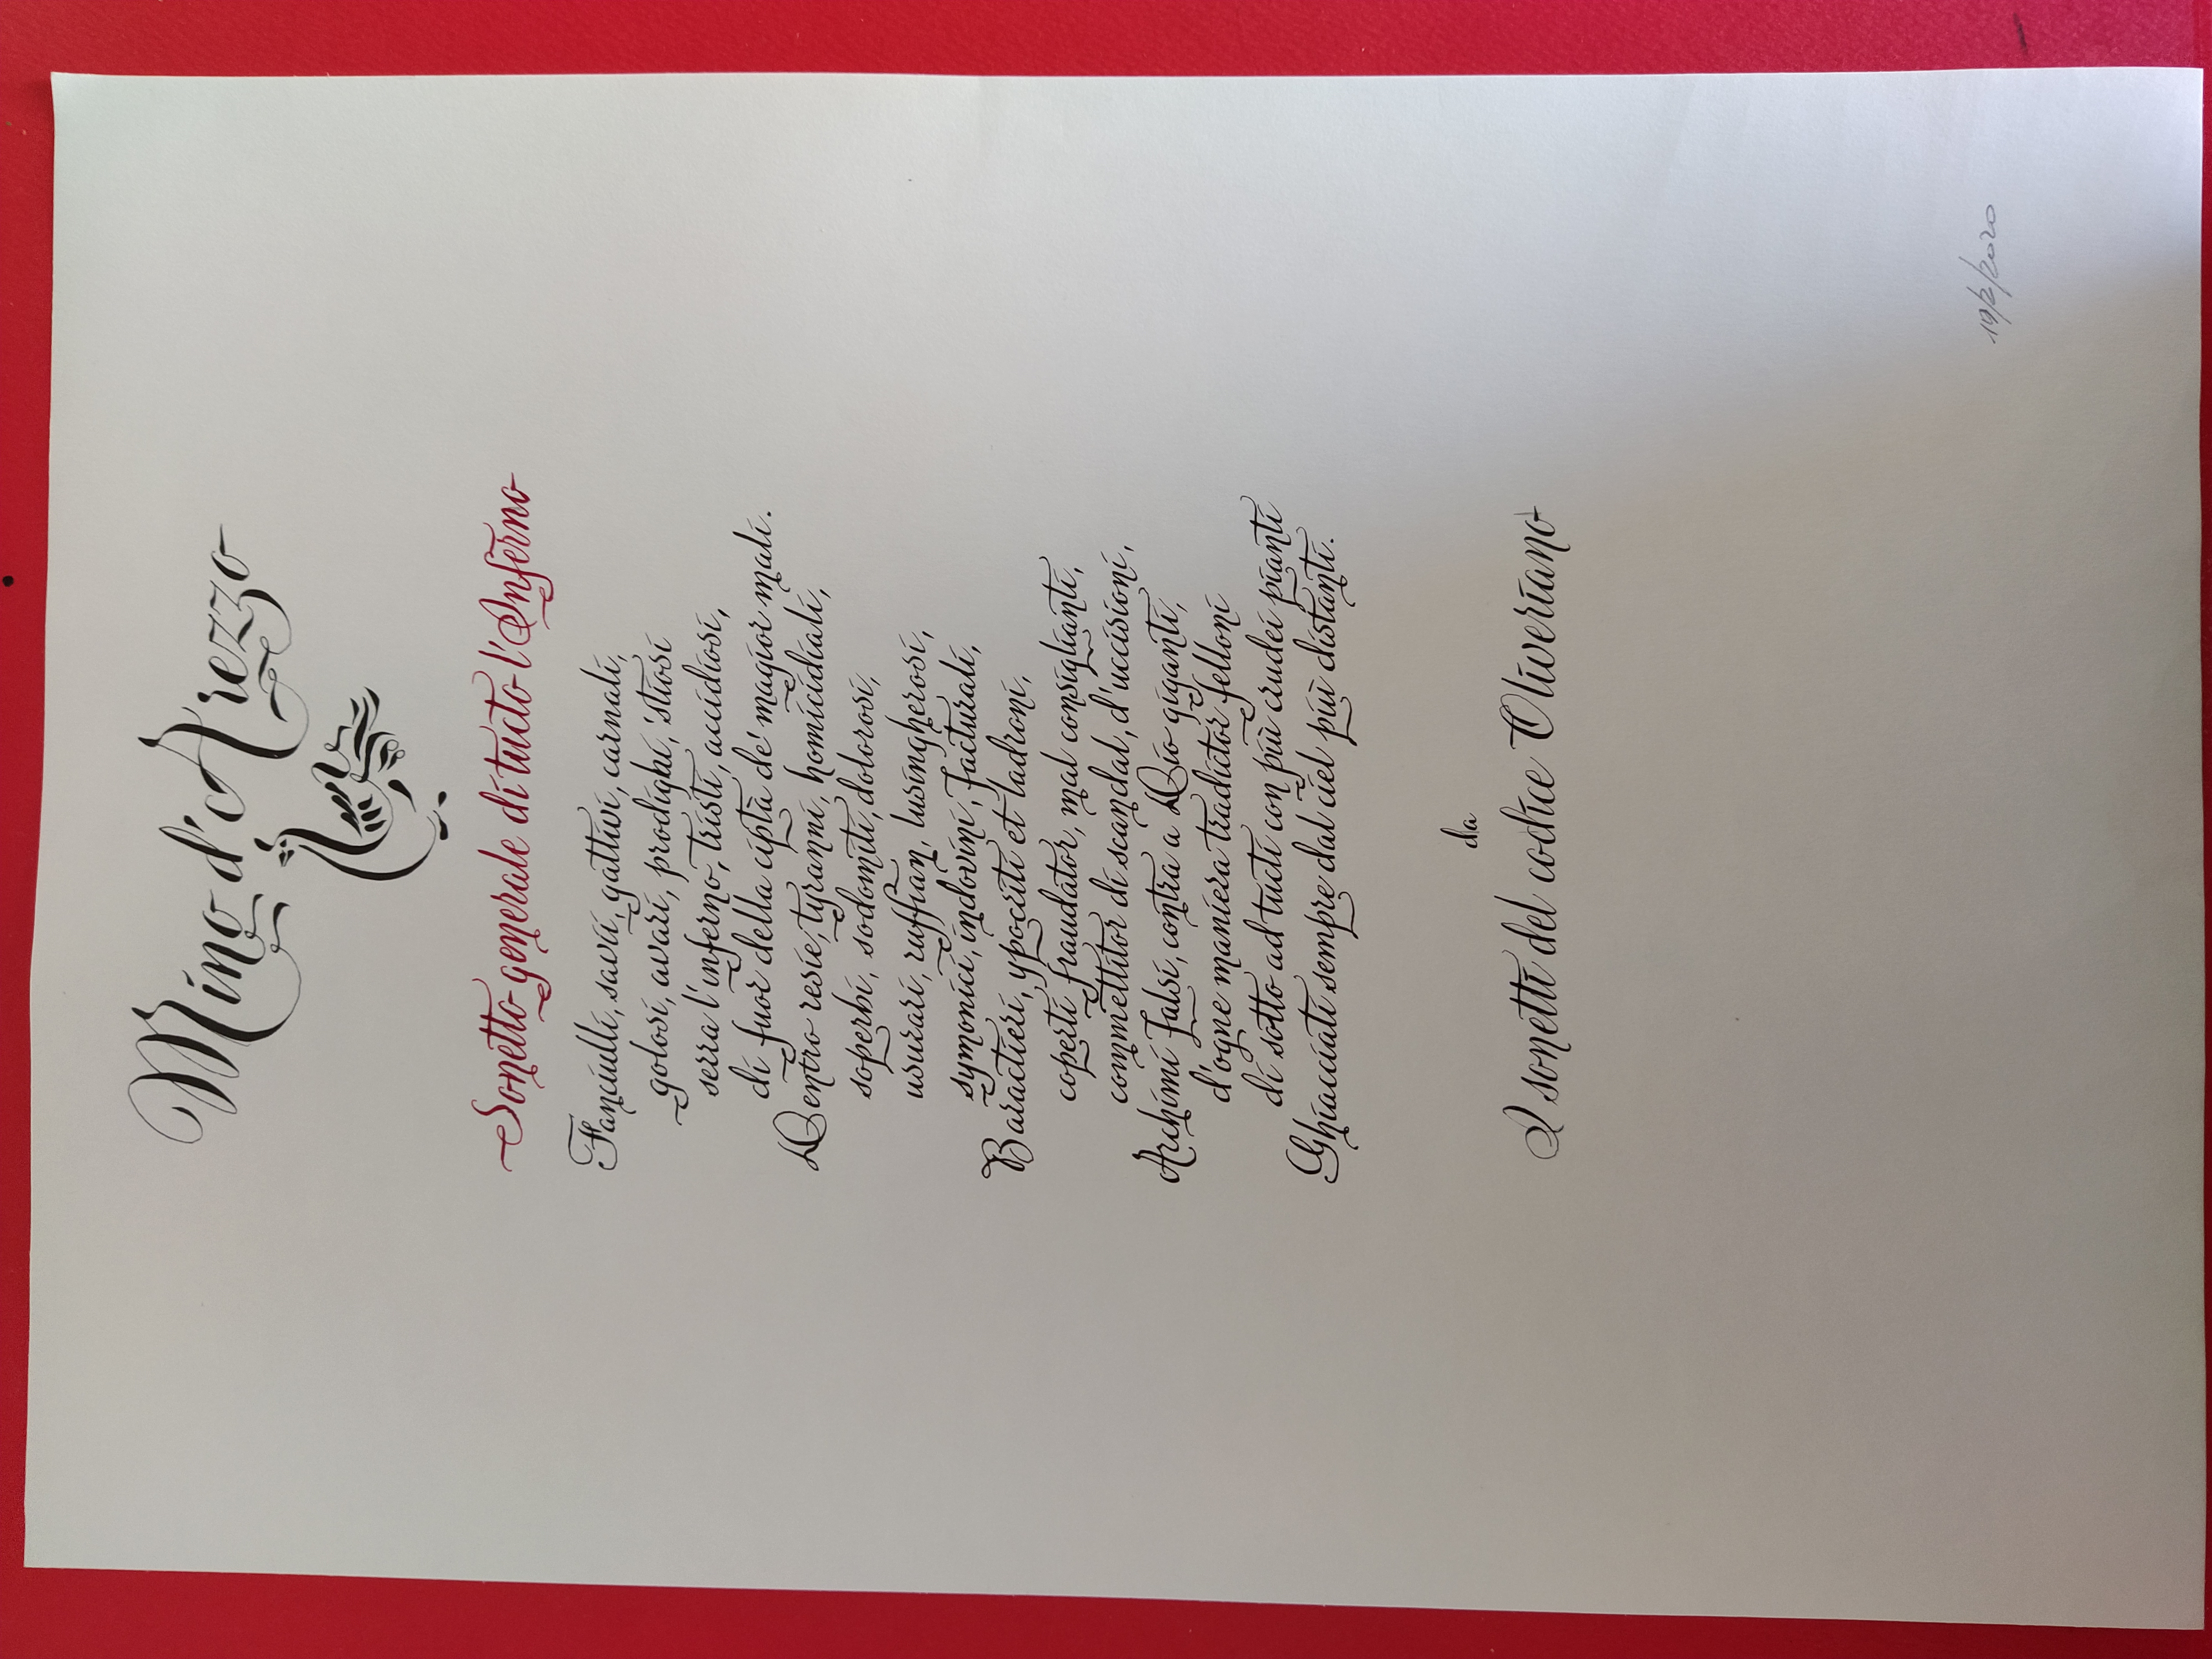 Mino d'Arezzo
Sonetto generale di tucto l'Inferno
Fanciulli, savi, gattivi, carnali,
golosi, avari, prodighi, 'stiosi
serra l'inferno, tristi, accidiosi,
di fuor della ciptà de' magior mali.
Dentro resie, tyranni, homicidiali,
soperbi, sodomiti, dolorosi,
usurari, ruffian, lusingherosi,
symonici, indovini, facturali,
Baractieri, ypocriti et ladroni,
coperti fraudator, mal consiglianti,
commettitor di scandal, d'uccisioni,
Archimi falsi, contra a Dio giganti,
d'ogne maniera tradictor felloni
di sotto ad tucti con più crudei pianti
Ghiacciati sempre dal ciel più distanti.
da
I sonetti del codice Oliveriano
19/2/2020